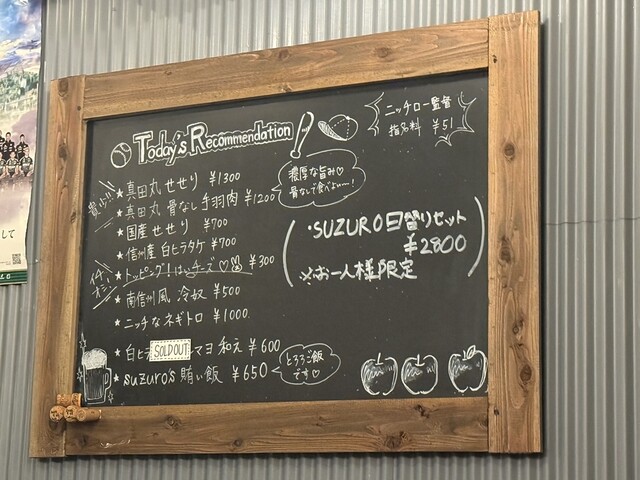 Today's Recommendation
ニッチロー監督
指名料 ¥51
濃厚な旨み♡
骨なしで食べよい〜!
貴い!!
★真田丸 せせり ¥1300
★真田丸 骨なし手羽肉 ¥1200
★国産 せせり ¥700
★信州産 白ヒラタケ ¥700
イチオシ
★トッピング!はぃチーズ♡ ¥300
★南信州風 冷奴 ¥500
★ニッチなネギトロ ¥1000.
★白ヒラ SOLD OUT マヨ和え ¥600
★suzuro's 賄い飯 ¥650
とろろご飯
です♡
・SUZURO日替りセット
¥2800
※お一人様限定
して